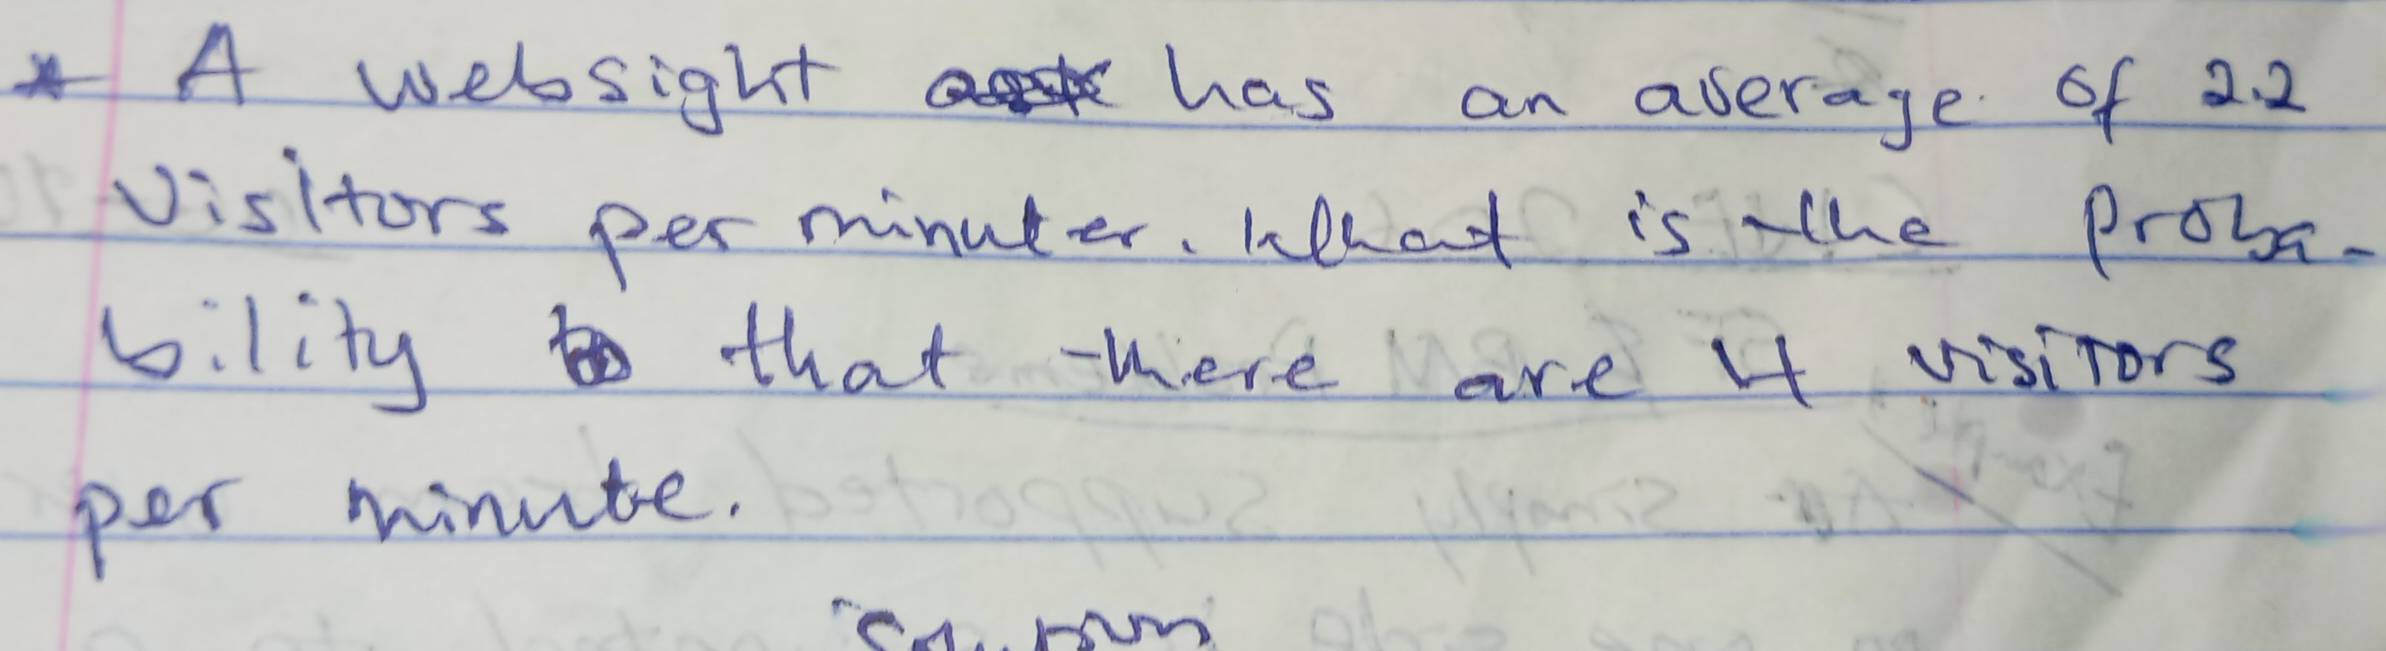 * A websight has an average of 2.2
visitors per minuter. What is the proba-
bility that there are 4 visitors
per minute.